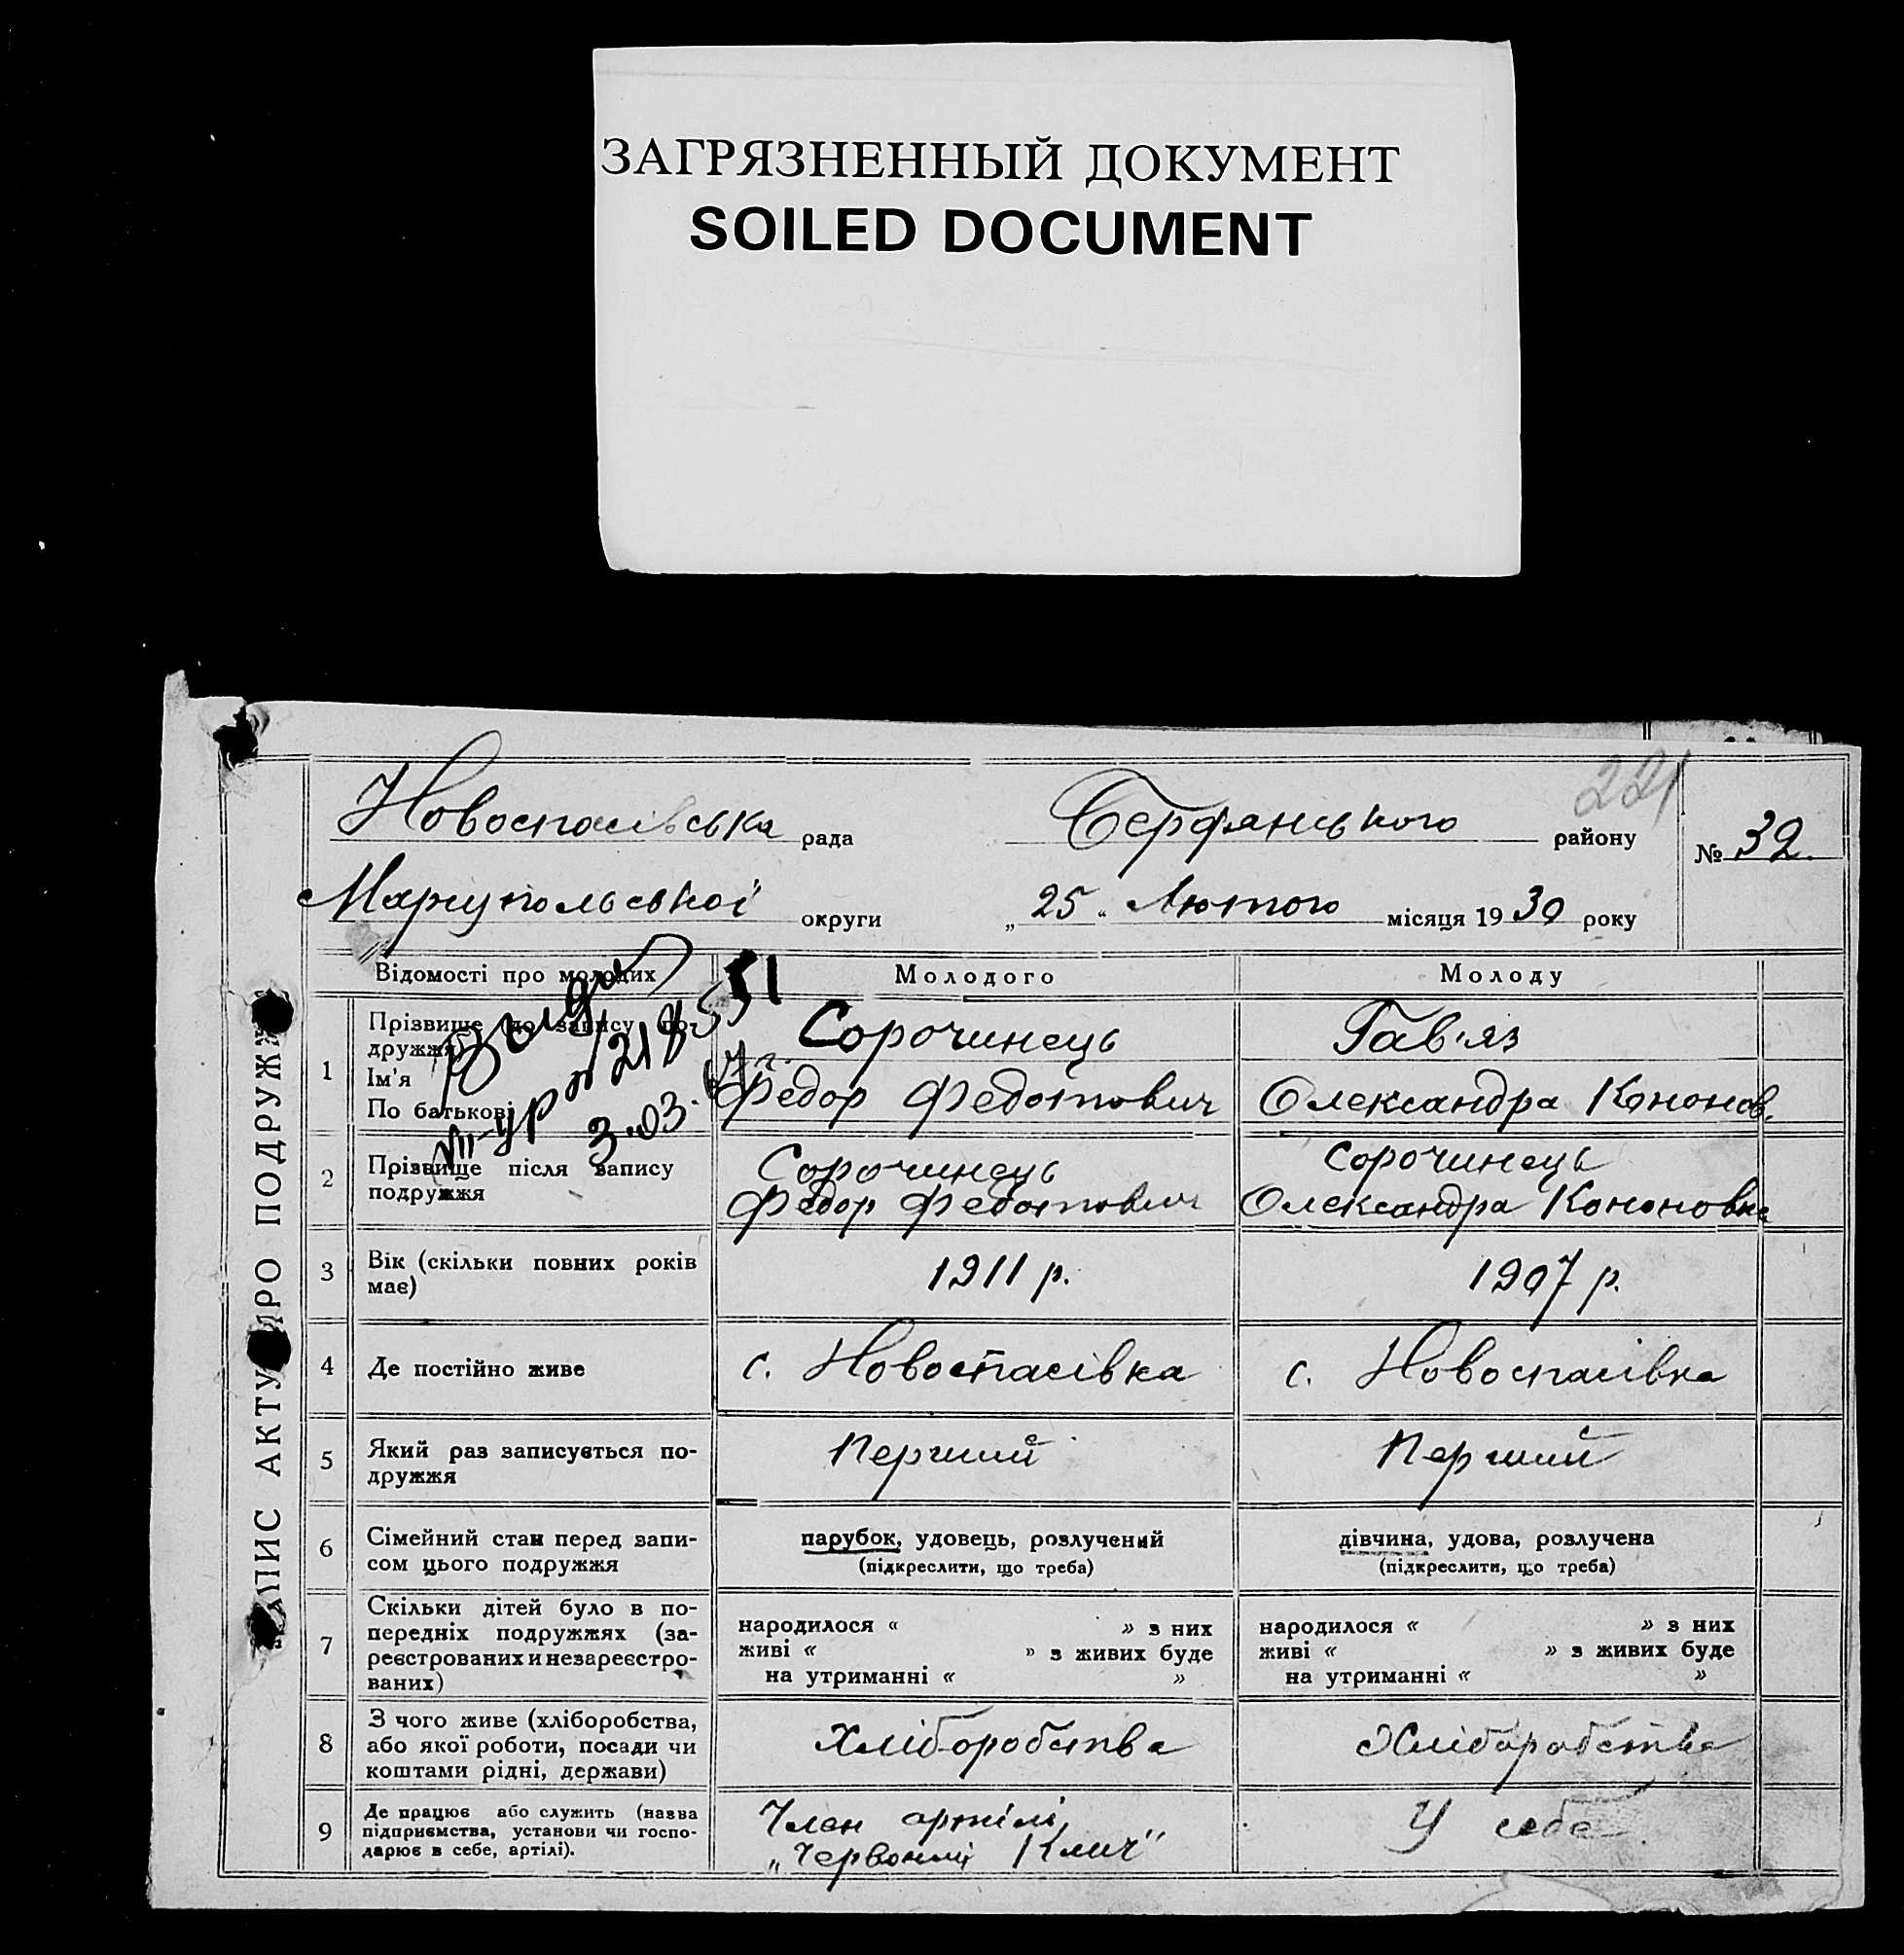 ЗАГРЯЗНЕННЫЙ ДОКУМЕНТ
SOILED DOCUMENT
221
Новоспасівська рада Бердянського району № 32.
Маріупольської округи „25“ Лютого місяця 1930 року
ЗАПИС АКТУ ПРО ПОДРУЖЖЯ
Відомості про молодих Молодого Молоду
1 Прізвище до запису подружжя Сорочинець Гав'яз
Ім'я
По батькові Федор Федотович Олександра Кононов.
3.03.
2 Прізвище після запису подружжя Сорочинець Сорочинець
Федор Федотович Олександра Кононовна
3 Вік (скільки повних років має) 1911 р. 1907 р.
4 Де постійно живе с. Новоспасівка с. Новоспасівка
5 Який раз записується подружжя Перший Перший
6 Сімейний стан перед записом цього подружжя парубок, удовець, розлучений дівчина, удова, розлучена
(підкреслити, що треба) (підкреслити, що треба)
7 Скільки дітей було в попередніх подружжях (зареєстрованих и незареєстрованих) народилося « » з них народилося « » з них
живі « » з живих буде живі « » з живих буде
на утриманні « » на утриманні « »
8 З чого живе (хліборобства, або якої роботи, посади чи коштами рідні, держави) Хліборобства Хліборобства
9 Де працює або служить (назва підприємства, установи чи господарює в себе, артілі). Член артілі У себе
„Червоний Клич"